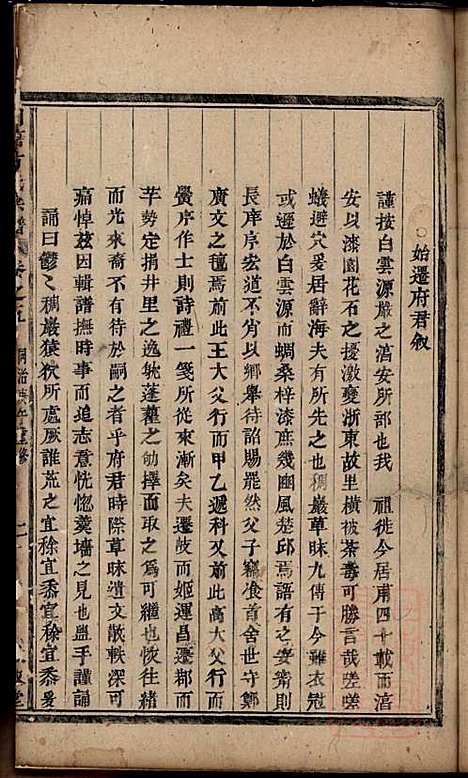 ○始遷府君叙
謹按白雲源嚴之淳安所部也我　祖徙今居甫四十載而淳
安以漆園花石之擾激變浙東故里橫被荼毒可勝言哉嗟
蟻避穴爰居辭海夫有所先之也稠巖草昧九傳于今雖衣冠
或遜於白雲源而蜩桑梓漆庶幾豳風楚邱焉語有之安齊則
長庠序宏道不何以鄉舉待詔賜罷然父子竊准首舍世守鄭
廣文之氊焉前此王大父行而甲乙遞科父前此高大父行而
黌序作士則詩禮一箋所從來漸矣夫遷岐而姬運昌遷鄀而
芉勢定捐井里之逸軌蓬藋之劬擇而取之允可繼也恢往緒
而光來裔不有待於嗣之者乎府君時際草昧遺文散軼深可
痛悼茲因輯譜撫時事而追志意恍惚羹墻之見也盥手謹誦
誦曰鬱鬱稠巖猿狖所處厥誰荒之宜稌宜黍宜稌宜黍爰